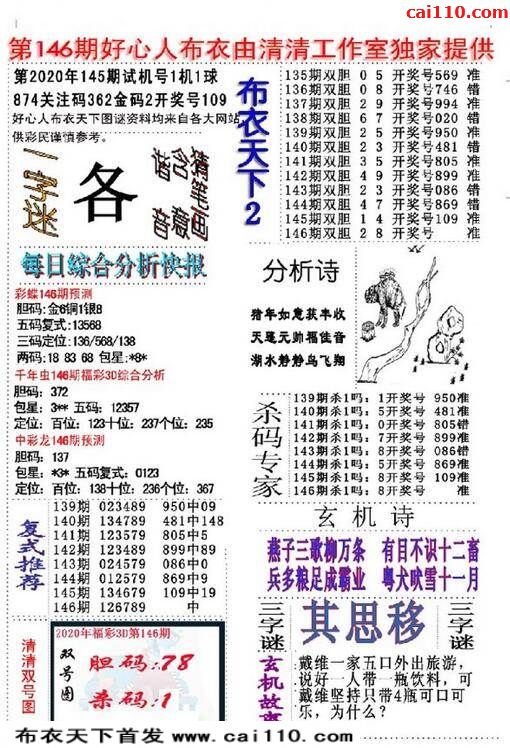 cai110.com
第146期好心人布衣由清清工作室独家提供
第2020年145期试机号1机1球
874关注码362金码2开奖号109
好心人布衣天下图谜资料均来自各大网站,
供彩民谨慎参考。
一字迷
各
猜笔画
含意
谐音
布衣天下2
135期双胆 0 5 开奖号569 准
136期双胆 0 8 开奖号746 错
137期双胆 2 9 开奖号994 准
138期双胆 6 7 开奖号020 错
139期双胆 2 5 开奖号950 准
140期双胆 2 3 开奖号481 错
141期双胆 3 5 开奖号805 准
142期双胆 4 9 开奖号899 准
143期双胆 2 3 开奖号086 错
144期双胆 4 7 开奖号869 错
145期双胆 1 4 开奖号109 准
146期双胆 2 8 开奖号 准
每日综合分析快报
彩蝶146期预测
胆码:金6铜1银8
五码复式:13568
三码定位:136/568/138
两码:18 83 68 包星:*8*
千年虫146期福彩3D综合分析
胆码:372
包星:3** 五码:12357
定位:百位:123十位:237个位:235
中彩龙146期预测
胆码:137
包星:*3* 五码复式:0123
定位:百位:138十位:236个位:367
分析诗
猪年如意获丰收
天蓬元帅福佳音
湖水静静鸟飞翔
杀码专家
139期杀1吗:1开奖号 950准
140期杀1吗:5开奖号 481准
141期杀1吗:0开奖号 805错
142期杀1吗:7开奖号 899准
143期杀1吗:8开奖号 086错
144期杀1吗:1开奖号 869准
145期杀1吗:8开奖号 109准
146期杀1吗:8开奖号 准
复式推荐
139期 023489 950中09
140期 134789 481中148
141期 123579 805中5
142期 123489 899中89
143期 234579 086中0
144期 012579 869中9
145期 134679 109中19
146期 126789 中
玄机诗
燕子三歌柳万条 有目不识十二畜
兵多粮足成霸业 粤犬吠雪十一月
三字谜
其思移
三字谜
清清双号图
2020年福彩3D第146期
双号图
胆码:78
杀码:1
玄机故事
戴维一家五口外出旅游,
说好一人带一瓶饮料,可
戴维坚持只带4瓶可口可
乐,为什么?
布衣天下首发 www.cai110.com